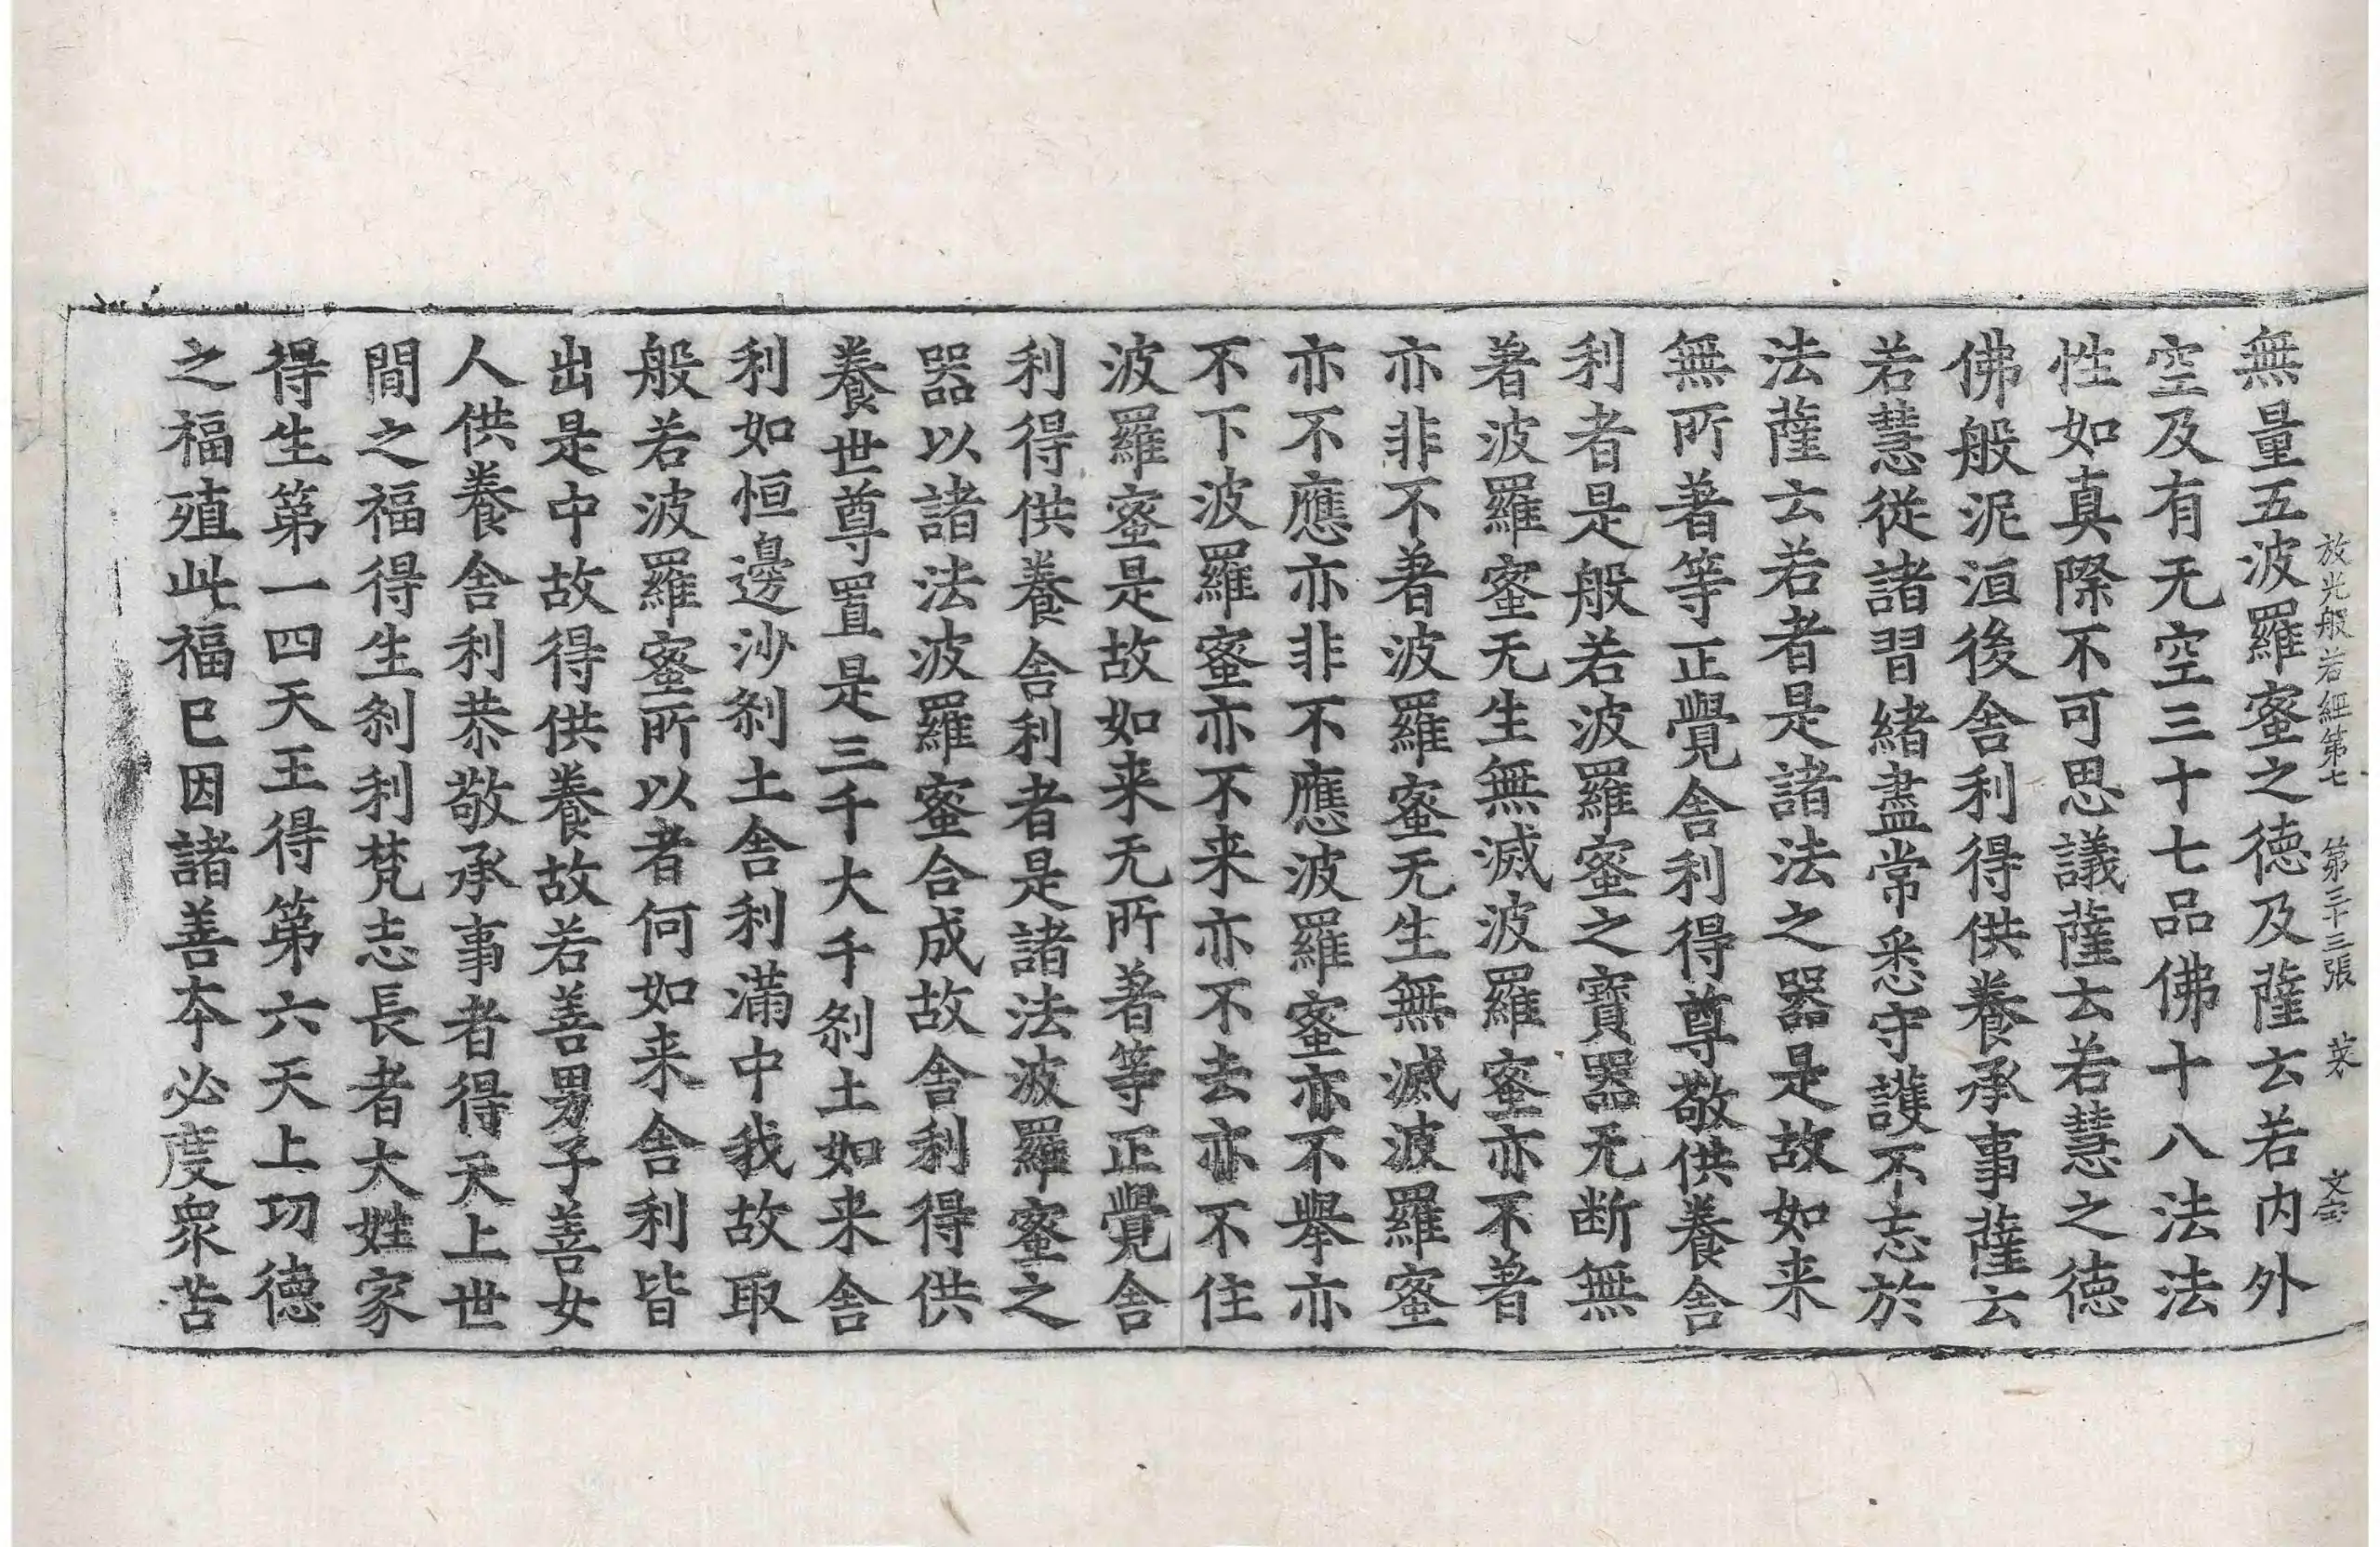 放光般若經第七 第三十三張 菜 文宝
無量五波羅蜜之德及薩云若内外
空及有无空三十七品佛十八法法
性如真際不可思議薩云若慧之德
佛般泥洹後舎利得供養承事薩云
若慧從諸習緒盡常悉守護不忘於
法薩云若者是諸法之器是故如来
無所著等正覺舎利得尊敬供養舎
利者是般若波羅蜜之寶器无断無
著波羅蜜无生無滅波羅蜜亦不著
亦非不著波羅蜜无生無滅波羅蜜
亦不應亦非不應波羅蜜亦不舉亦
不下波羅蜜亦不来亦不去亦不住
波羅蜜是故如来无所著等正覺舎
利得供養舎利者是諸法波羅蜜之
器以諸法波羅蜜合成故舎利得供
養世尊置是三千大千刹土如来舎
利如恒邊沙刹土舎利滿中我故取
般若波羅蜜所以者何如来舎利皆
出是中故得供養故若善男子善女
人供養舎利恭敬承事者得天上世
間之福得生刹利梵志長者大姓家
得生第一四天王得第六天上功德
之福殖此福已因諸善夲必度衆苦